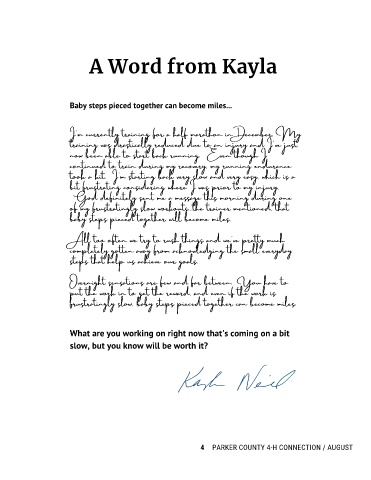 A Word from Kayla
Baby steps pieced together can become miles...
I'm currently training for a half marathon in December. My
training was drastically reduced due to an injury and I'm just
now been able to start back running. Even though I
continued to train during my recovery my running endurance
took a hit. I'm starting back very slow and very easy, which is a
bit frustrating considering where I was prior to my injury.
God definitely sent me a message this morning during one
of my frustratingly slow workouts, the trainer mentioned that
baby steps pieced together will become miles.
All too often we try to rush things and we've pretty much
completely gotten away from acknowledging the small everyday
steps that help us achieve our goals.
Overnight sensations are few and far between. You have to
put the work in to get the reward and even if the work is
frustratingly slow, baby steps pieced together can become miles.
What are you working on right now that's coming on a bit
slow, but you know will be worth it?
Kayla Neill
4 PARKER COUNTY 4-H CONNECTION / AUGUST